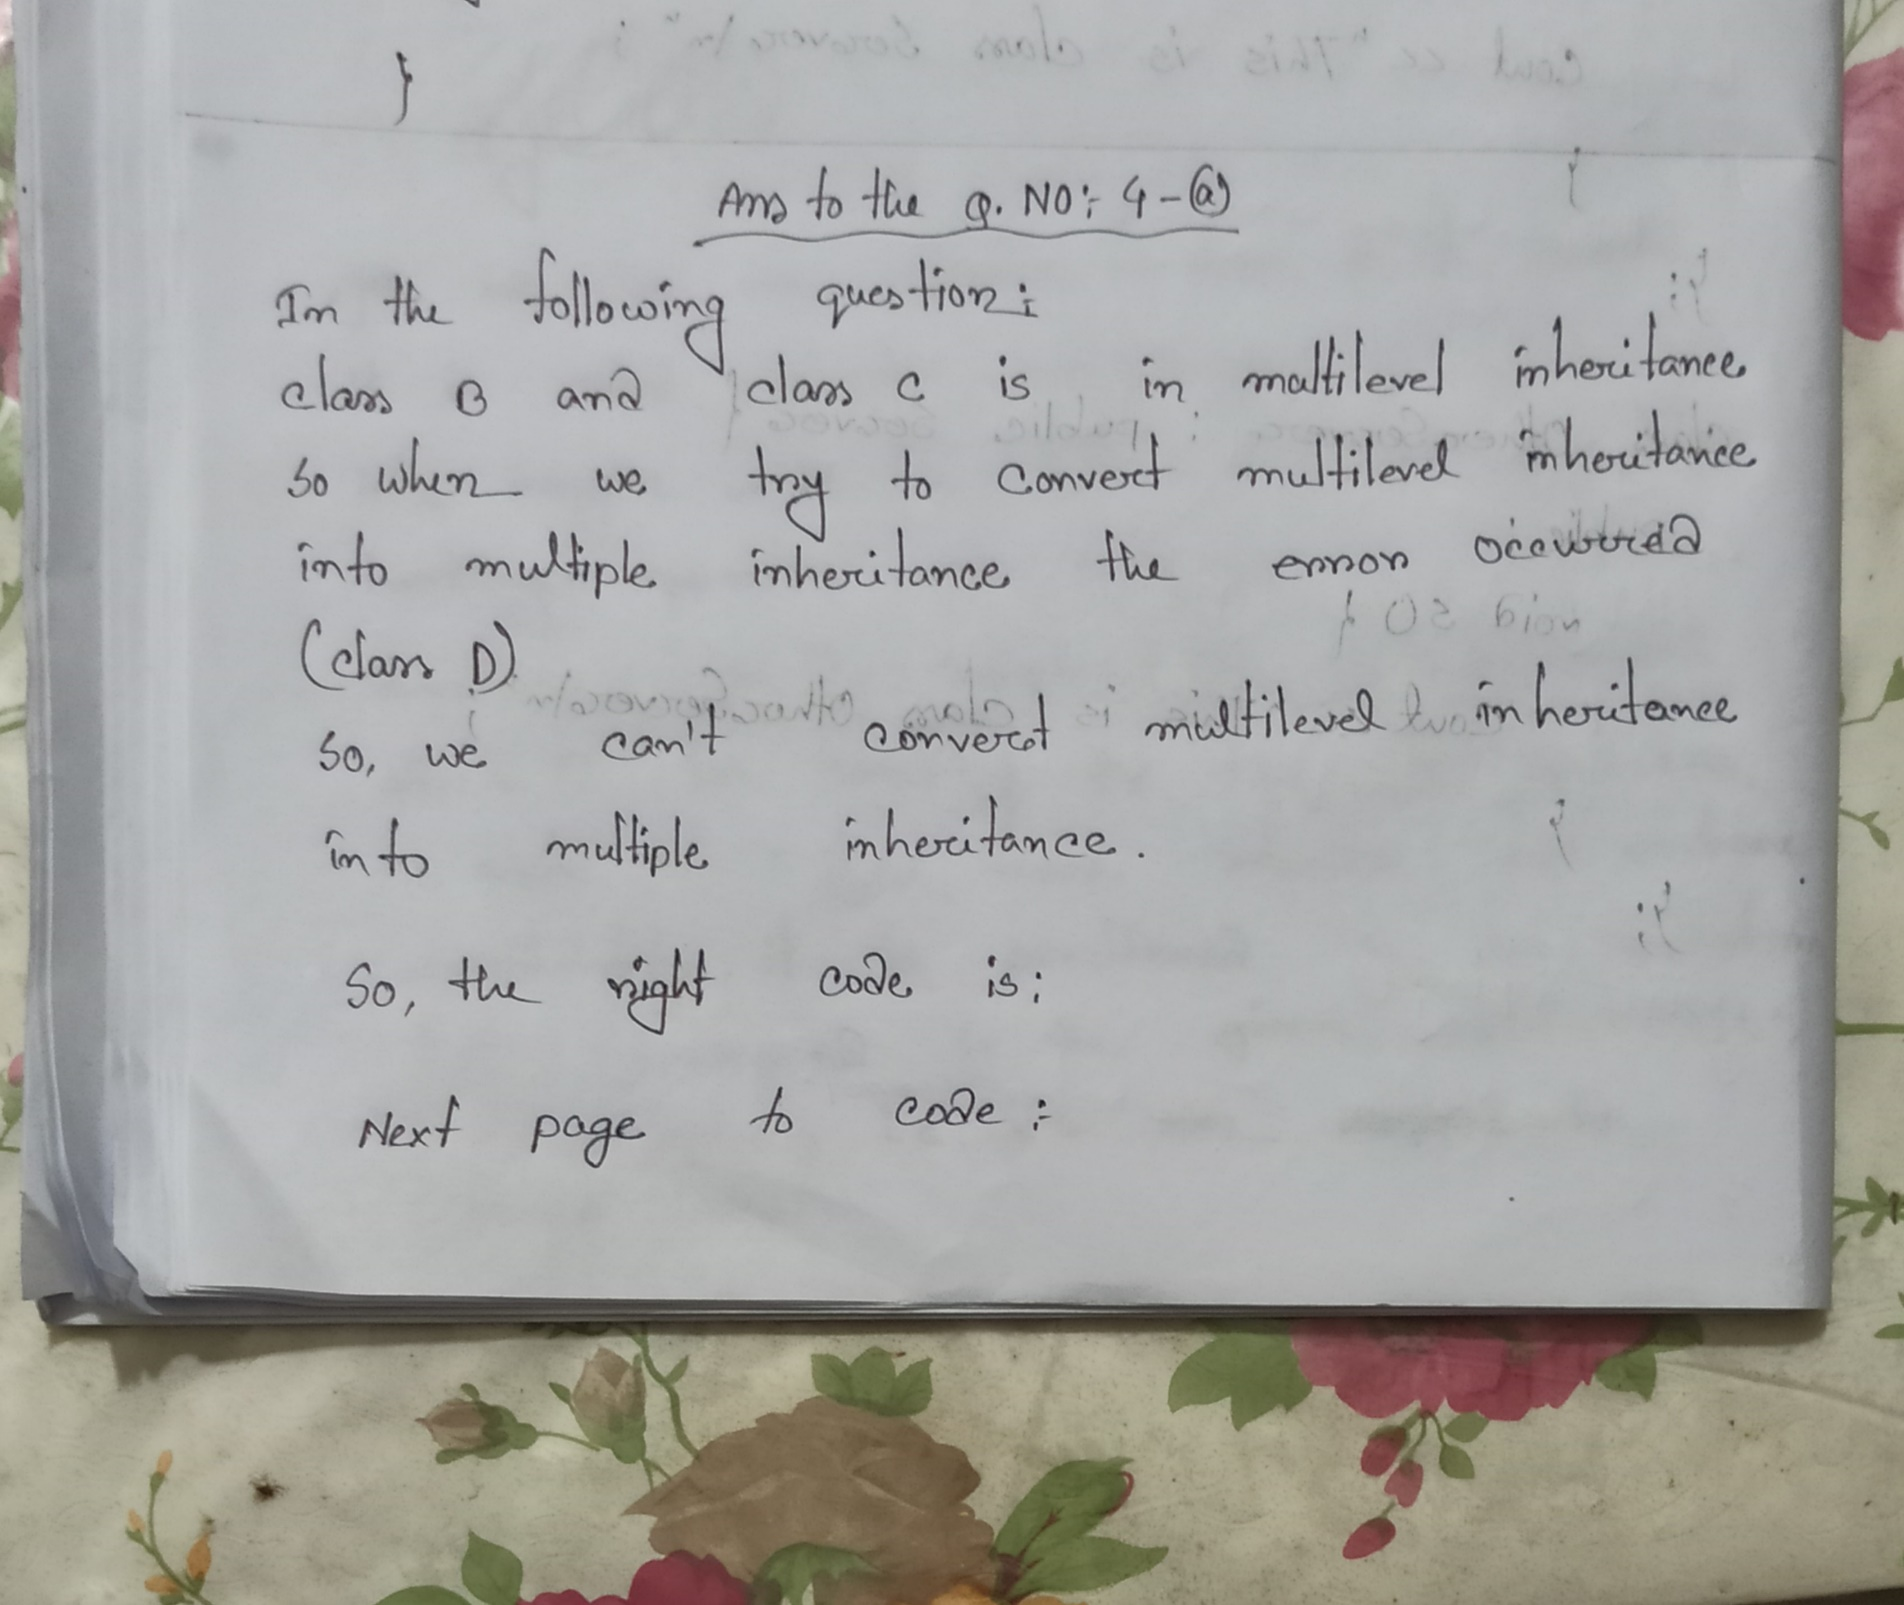 }
Ans to the Q. NO: 4-(a)
In the following question:
class B and class C is in maltilevel inheritance
so when we try to convert multilevel inheritance
into multiple inheritance the error occurred
(class D)
So, we can't convert multilevel inheritance
into multiple inheritance.
So, the right code is:
Next page to code :-